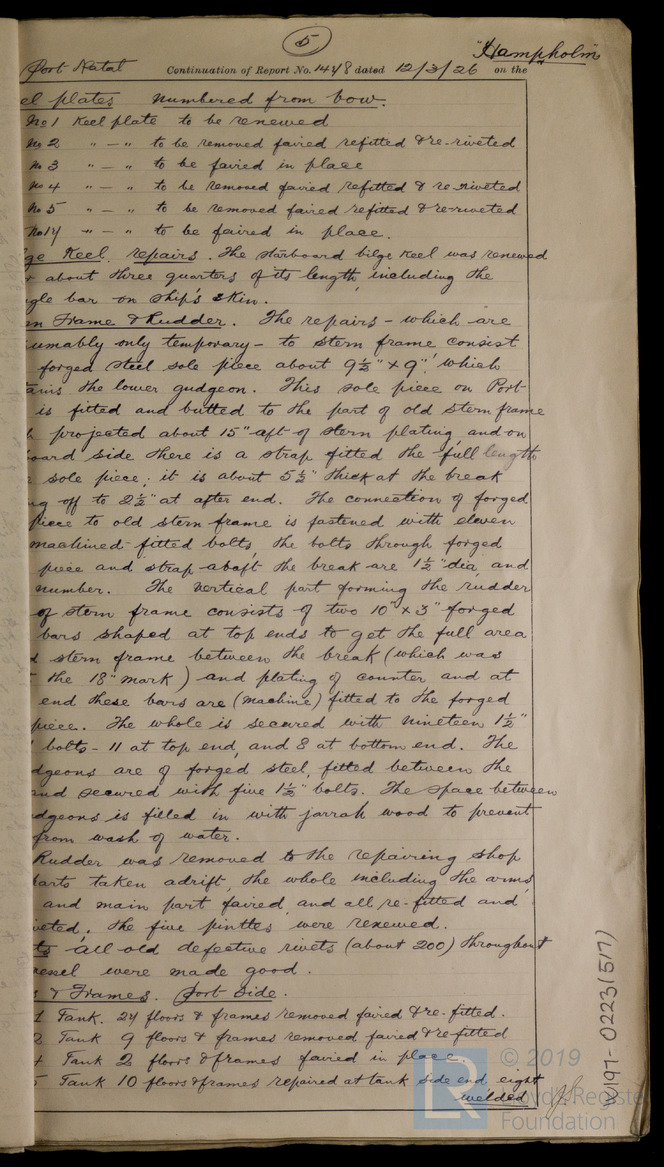 5
"Hampholm"
Port Natal Continuation of Report No. 1448 dated 12/3/26 on the
el plates numbered from bow.
No 1 Keel plate to be renewed
No 2 " — " to be removed faired refitted & re-riveted
No 3 " — " to be faired in place
No 4 " — " to be removed faired refitted & re-riveted
No 5 " — " to be removed faired refitted & re-riveted
No 14 " — " to be faired in place.
ge Keel repairs. The starboard bilge keel was renewed
r about three quarters of its length, including the
gle bar on ship's skin.
rn Frame & Rudder. The repairs - which are
umably only temporary - to stern frame consist
forged steel sole piece about 9½" x 9", which
tains the lower gudgeon. This sole piece on Port
is fitted and butted to the part of old stern frame
h projected about 15" aft of stern plating, and on
board side there is a strap fitted the full length
sole piece; it is about 5½" thick at the break
ng off to 2½" at after end. The connection of forged
piece to old stern frame is fastened with eleven
machined fitted bolts, the bolts through forged
piece and strap abaft the break are 1½" dia, and
number. The vertical part forming the rudder
of stern frame consists of two 10" x 3" forged
bars shaped at top ends to get the full area
d stern frame between the break (which was
the 18" mark) and plating of counter and at
end these bars are (machine) fitted to the forged
piece. The whole is secured with nineteen 1½"
" bolts - 11 at top end, and 8 at bottom end. The
dgeons are of forged steel, fitted between the
and secured with five 1½" bolts. The space between
dgeons is filled in with jarrah wood to prevent
from wash of water.
Rudder was removed to the repairing shop
parts taken adrift, the whole including the arms
and main part faired, and all re-fitted and
veted. The five pintles were renewed.
ts all old defective rivets (about 200) throughout
vessel were made good.
s & Frames. Port Side.
1 Tank. 24 floors & frames removed faired & re-fitted.
2 Tank 9 floors & frames removed faired & refitted
4 Tank 2 floors & frames faired in place.
5 Tank 10 floors & frames repaired at tank side end, eight
welded
W197-0223(5/7)
© 2019
LR
Lloyd's Register
Foundation